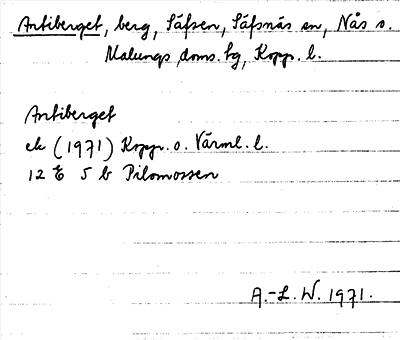 Antiberget, berg, Säfsen, Säfsnäs sn, Nås o.
Malungs doms. tg, Kopp. l.
Antiberget
ek (1971) Kopp. o. Värml. l.
12 E 5 b Pilomossen
A.-L. W. 1971.